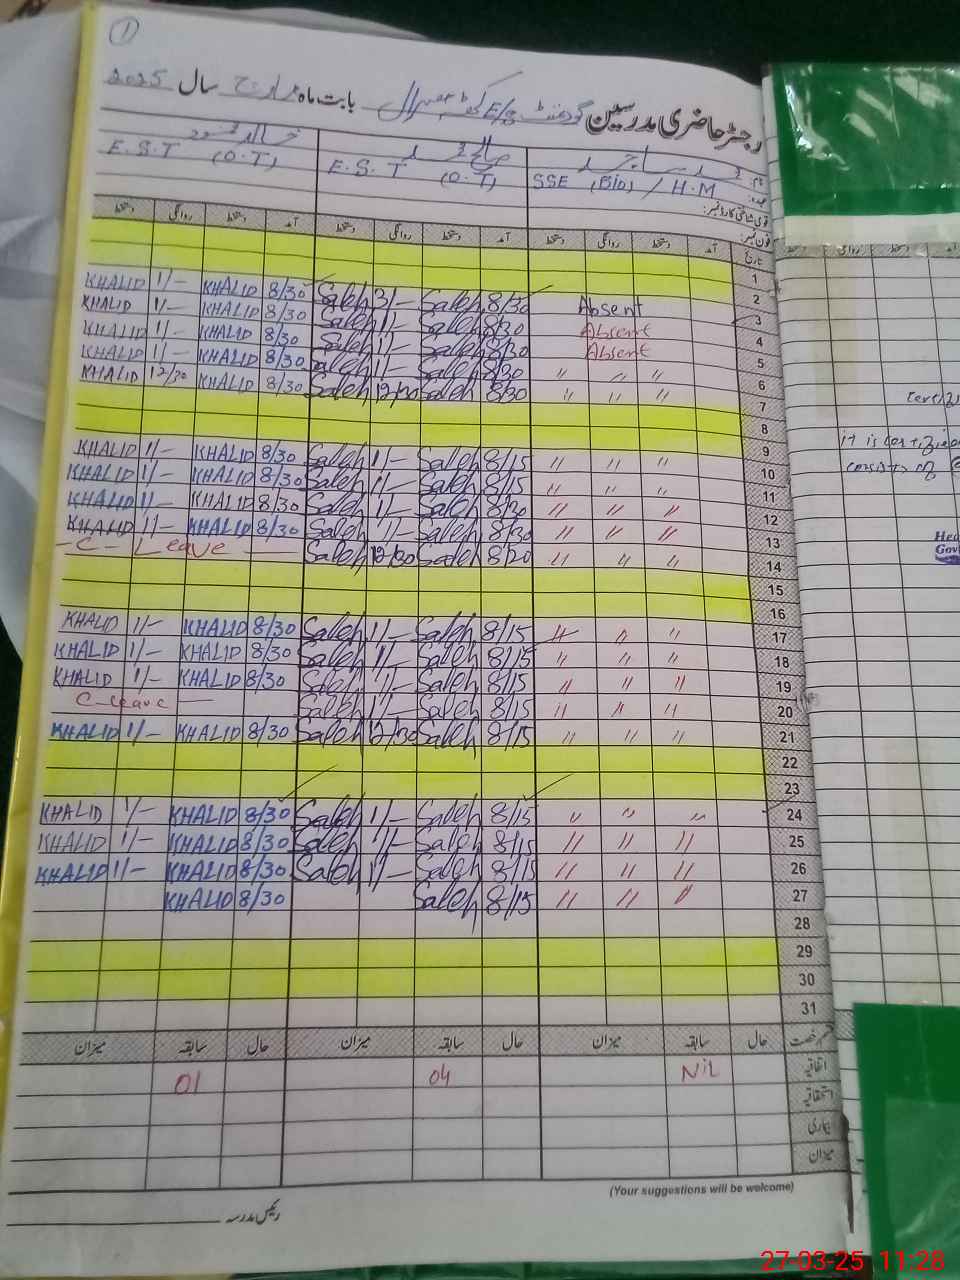 1
رجسٹر حاضری مدرسین گورنمنٹ E/S بابت ماہ مارچ سال 2025
نام: صالح محمد خالد محمود
عہدہ: SSE (Bio) / H.M E.S.T (O.T) E.S.T (O.T)
قومی شناختی کارڈ نمبر:
فون نمبر:
تاریخ آمد دستخط روانگی دستخط آمد دستخط روانگی دستخط آمد دستخط روانگی دستخط
1
2
3 Absent 8/30 Saleh 3/- Saleh 8/30 KHALID 1/- KHALID
4 Absent 8/30 Saleh 1/- Saleh 8/30 KHALID 1/- KHALID
5 Absent 8/30 Saleh 1/- Saleh 8/30 KHALID 1/- KHALID
6 " " " 8/30 Saleh 1/- Saleh 8/30 KHALID 1/- KHALID
7 " " " 8/30 Saleh 12/30 Saleh 8/30 KHALID 12/30 KHALID
8
9
10 " " " 8/15 Saleh 1/- Saleh 8/30 KHALID 1/- KHALID
11 " " " 8/15 Saleh 1/- Saleh 8/30 KHALID 1/- KHALID
12 " " " 8/30 Saleh 1/- Saleh 8/30 KHALID 1/- KHALID
13 " " " 8/30 Saleh 1/- Saleh 8/30 KHALID 1/- KHALID
14 " " " 8/20 Saleh 12/30 Saleh - C - Leave
15
16
17 " " " 8/15 Saleh 1/- Saleh 8/30 KHALID 1/- KHALID
18 " " " 8/15 Saleh 1/- Saleh 8/30 KHALID 1/- KHALID
19 " " " 8/15 Saleh 1/- Saleh 8/30 KHALID 1/- KHALID
20 " " " 8/15 Saleh 1/- Saleh C-leave
21 " " " 8/15 Saleh 12/30 Saleh 8/30 KHALID 1/- KHALID
22
23
24 " " " 8/15 Saleh 1/- Saleh 8/30 KHALID 1/- KHALID
25 " " " 8/15 Saleh 1/- Saleh 8/30 KHALID 1/- KHALID
26 " " " 8/15 Saleh 1/- Saleh 8/30 KHALID 1/- KHALID
27 " " " 8/15 Saleh 8/30 KHALID
28
29
30
31
قسم رخصت حال سابقہ میزان حال سابقہ میزان حال سابقہ میزان
اتفاقیہ Nil 04 01
استحقاقیہ
بیماری
میزان
(Your suggestions will be welcome)
رئیس مدرسہ
it is
27-03-25 11:28